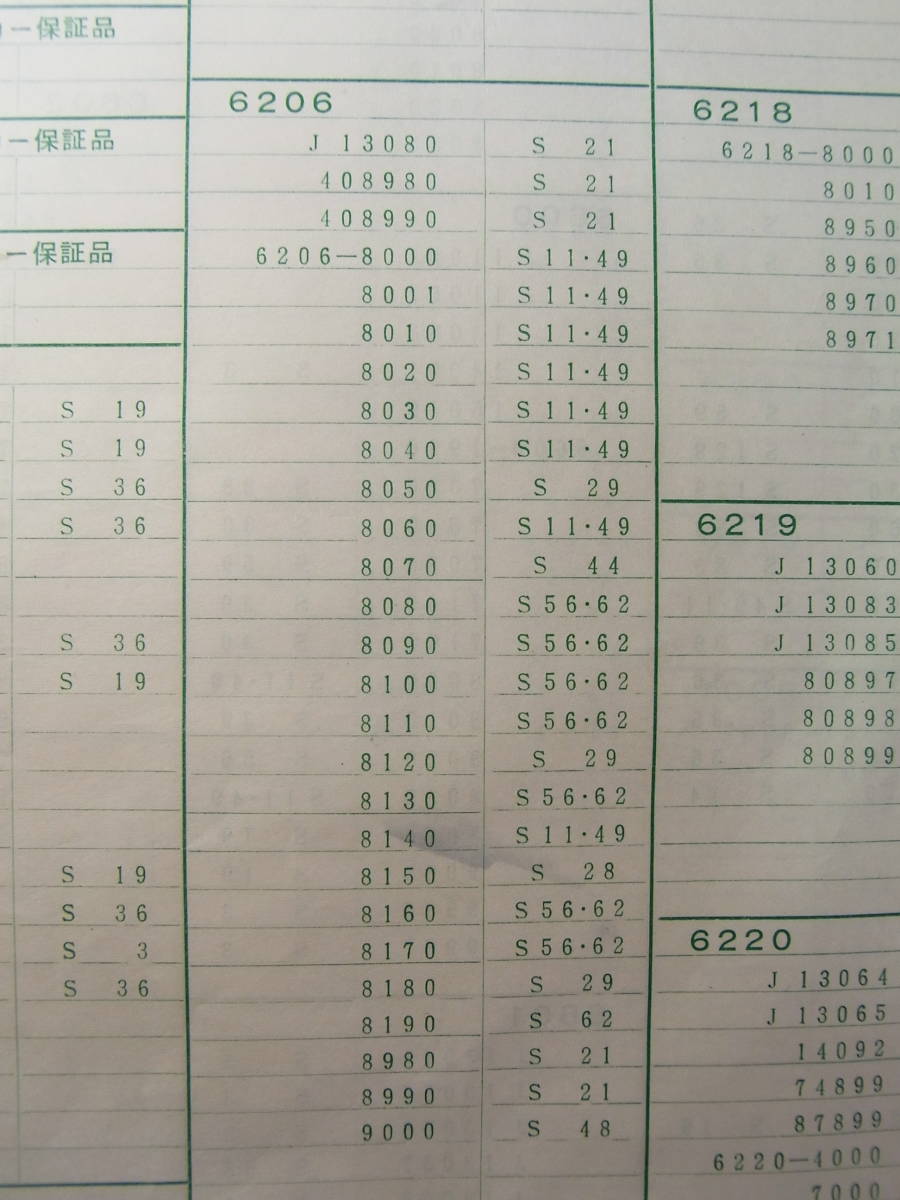 ー保証品
ー保証品
ー保証品
S 19
S 19
S 36
S 36
S 36
S 19
S 19
S 36
S 3
S 36
6206
J 13080 S 21
408980 S 21
408990 S 21
6206-8000 S 11・49
8001 S 11・49
8010 S 11・49
8020 S 11・49
8030 S 11・49
8040 S 11・49
8050 S 29
8060 S 11・49
8070 S 44
8080 S 56・62
8090 S 56・62
8100 S 56・62
8110 S 56・62
8120 S 29
8130 S 56・62
8140 S 11・49
8150 S 28
8160 S 56・62
8170 S 56・62
8180 S 29
8190 S 62
8980 S 21
8990 S 21
9000 S 48
6218
6218-8000
8010
8950
8960
8970
8971
6219
J 13060
J 13083
J 13085
80897
80898
80899
6220
J 13064
J 13065
14092
74899
87899
6220-4000
7000